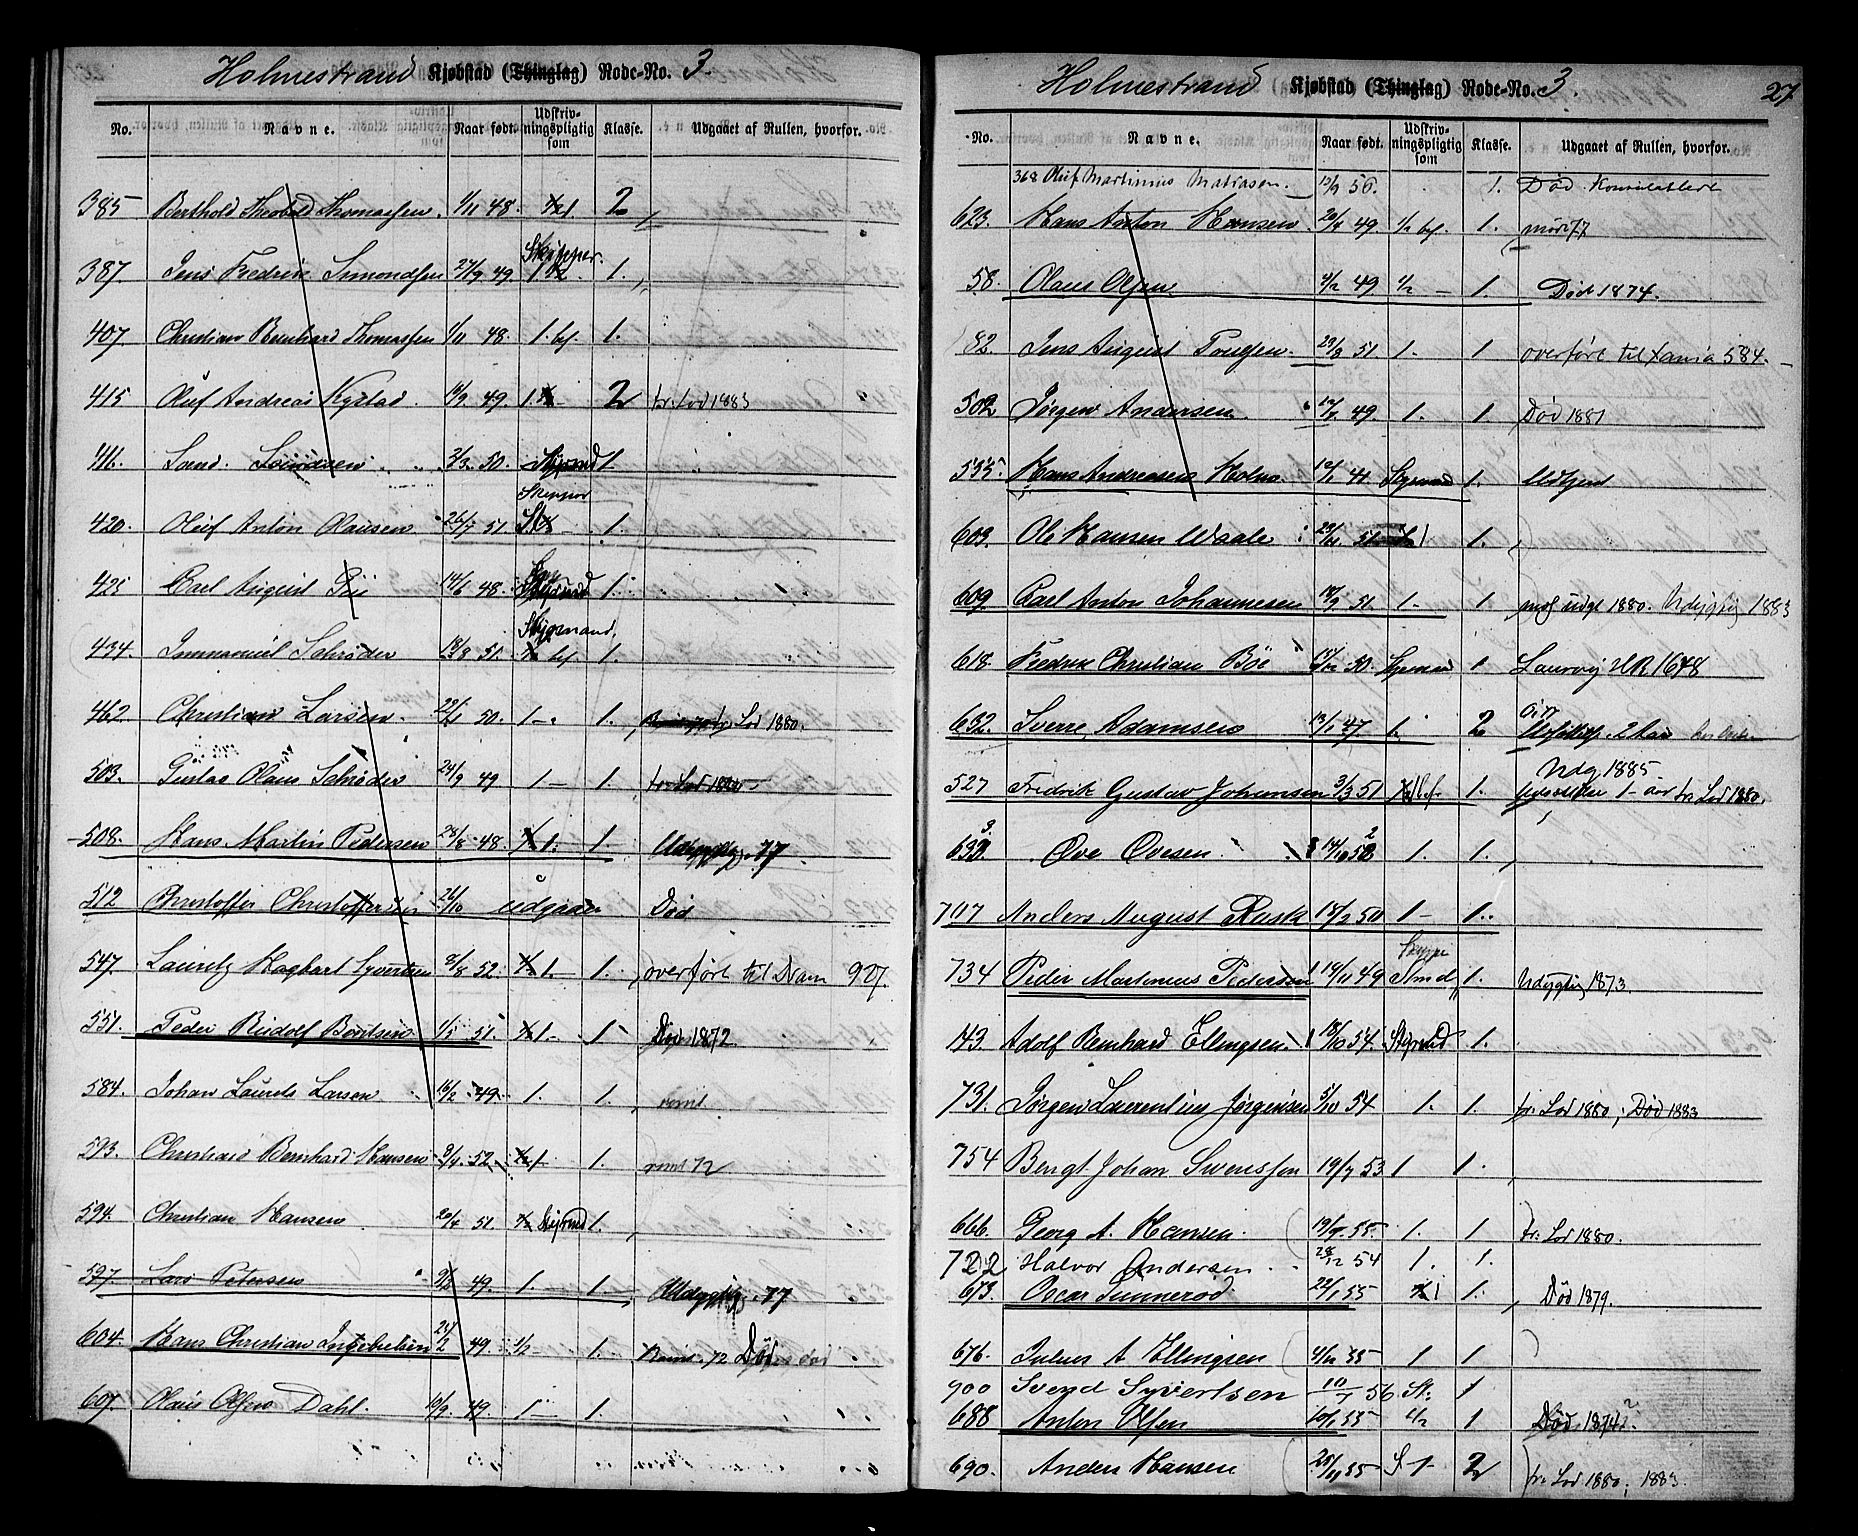 Holmestrand Kjøbstad (Thinglag) Rode-No. 3.
No. Navne. Naar født. Udskrivningspligtig som Klasse. Udgaaet af Rullen, hvorfor.
385. Berthold Theobald Thomassen. 1/11 48. 2
Skipper.
387. Jens Fredrik Simondsen 27/9 49. 1.
407. Christian Bernhard Thomassen 1/11 48. 1. bf. 1.
415 Oluf Andreas Kystad. 49. 1. 2 fr. Lod 1883
416. Sørensen 2/3. 50. Styrmd 1.
Skipper
420. Oluf Anton Olausen 26/7 51 1.
425 Carl August Bøe 14/6 48. Styrmd 1.
Styrmand.
434. Immanuel Schrøder 18/8 51. bf. 1.
462. Christian Larsen. 29/1 50. 1 1. fr. Lod 1880.
503. Gustav Olaus Schrøder 24/9 49 1 1.
508. Hans Martin Pedersen 28/8 48. 1. 1. Udygtig 77
512 Christoffer Christoffersen 26/10 udgaar Død
547. Lauritz Hagbart Syvertsen 8/8 52. 1. 1. overført til Dram 927.
551. Peder Rudolf Berntsen 1/5 51. 1 1 Død 1872
584. Johan Laurits Larsen 16/2 49. 1. 1. rømt
593. Christian Bernhard Hansen 9/4. 52. 1 1. rømt 72
594. Christian Hansen 20/4 51. Styrmd 1.
597. Lars Petersen 49. 1. 1. Udygtig 77
604. Hans Christian 21/2 49. 1/2 1. Rømt 72 Død
607. Olaus Olsen Dahl. 10/9 49. 1 1.
Holmestrand Kjøbstad (Thinglag) Rode-No. 3. 27
No. Navne. Naar født. Udskrivningspligtig som Klasse. Udgaaet af Rullen, hvorfor.
368 Oluf Martinius Matiasen. 13/9 56. 1. Død
623. Hans Anton Hansen 20/4 49. 1/2 bf. 1.
58. Olaus Olsen 4/2 49 1/2 1. Død 1874.
82. Jens August Poulsen. 51. 1. 1 overført til Xania 584.
502 Jørgen Andersen 12/7 49. 1. 1. Død 1881
535. Hans Andreasen Holm Styrmd 1. Udtjent
603. Ole Hansen Waale 51 1.
609. Carl Anton Johannesen 18/9 51. 1. 1. udgt 1880. Udygtig 1883
618. Fredrik Christian Bøe 50. Styrmd 1 Laurvig HR 1648
632. Sverre Adamsen 13/1 47 1. 2
Udg 1885.
527 Fredrik Gustav Johansen 3/3 51 bf. 1. fr Lod 1880.
633. Ove Ovesen 14/10 52 1. 1.
717 Anders August Rask 18/2 50 1 1.
734 Peder Martinius Pedersen 19/11 49 Stmd 1. Udygtig 1873.
143. Adolf Bernhard Ellingsen 18/10 54. Styrmd 1.
731. Jørgen Laurentius Jørgensen 5/10 54 1. 1. fr. Lod 1880; Død 1883
754 Bengt Johan Svensson 19/7 53 1 1.
666. Georg A. Hansen. 55. 1. 1. fr. Lod 1880.
722 Halvor Andersen 28/12 54 1. 1.
673. Oscar Sunnerød 22/1 55 1 1. Død 1879.
676. Julius A Ellingsen 55 1 1
900 Svend Syvertsen 56 St. 1
688 Anton Olsen 10/1 55 1/2 1 Død 1874
690. Anders Hansen 28/11 55 1 2 fr. Lod 1880; 1883.